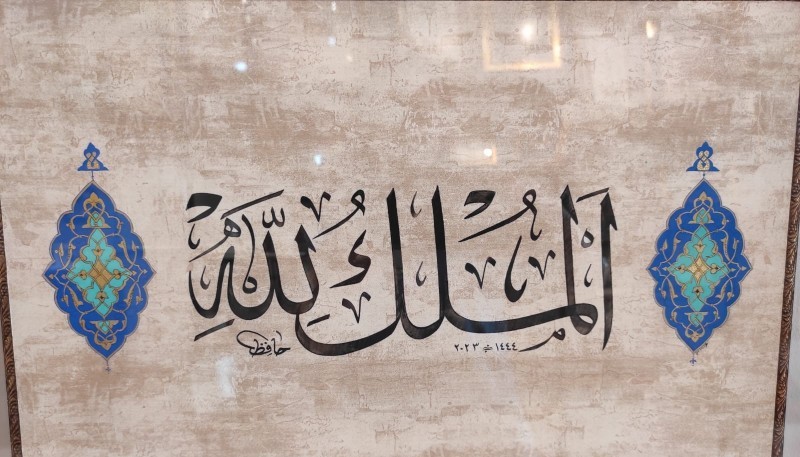 اَلْمُلْكُ لِلّٰهِ
١٤٤٤ ھ ٢٠٢٣
حافظ